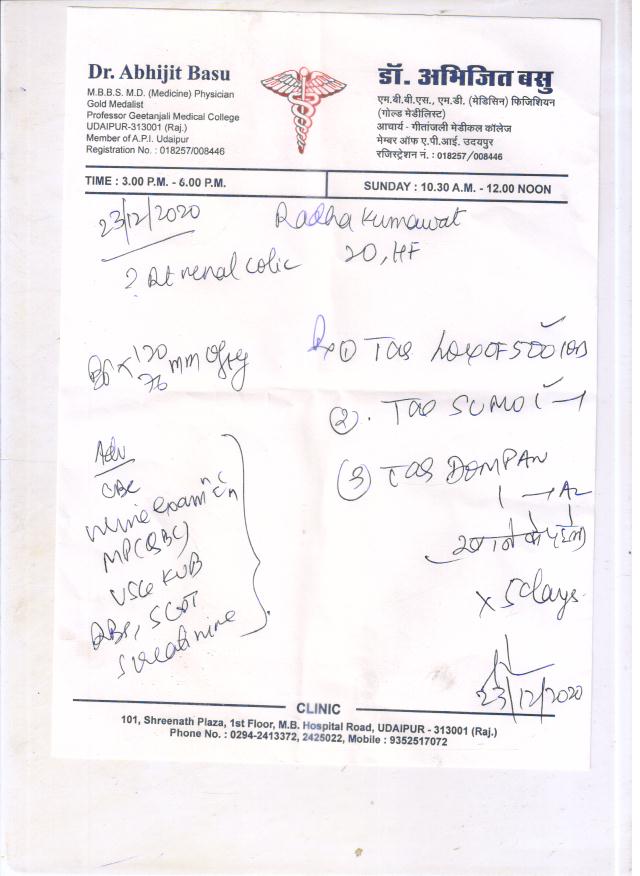 Dr. Abhijit Basu
M.B.B.S. M.D. (Medicine) Physician
Gold Medalist
Professor Geetanjali Medical College
UDAIPUR-313001 (Raj.)
Member of A.P.I. Udaipur
Registration No. : 018257/008446
डॉ. अभिजित बसु
एम.बी.बी.एस., एम.डी. (मेडिसिन) फिजिशियन
(गोल्ड मेडीलिस्ट)
आचार्य - गीतांजली मेडीकल कॉलेज
मेम्बर ऑफ ए.पी.आई. उदयपुर
रजिस्ट्रेशन नं. : 018257/008446
TIME : 3.00 P.M. - 6.00 P.M.
SUNDAY : 10.30 A.M. - 12.00 NOON
23/12/2020
Radha Kumawat
20,
? renal colic
120 mm of Hg
Rx ① TAB
②. TAB SUMO
③ TAB DOMPAN
Adv
CBC
urine exam
MP(QBC)
USG KUB
RBS, SGOT
S creatinine
x 5 days
23/12/2020
CLINIC
101, Shreenath Plaza, 1st Floor, M.B. Hospital Road, UDAIPUR - 313001 (Raj.)
Phone No. : 0294-2413372, 2425022, Mobile : 9352517072